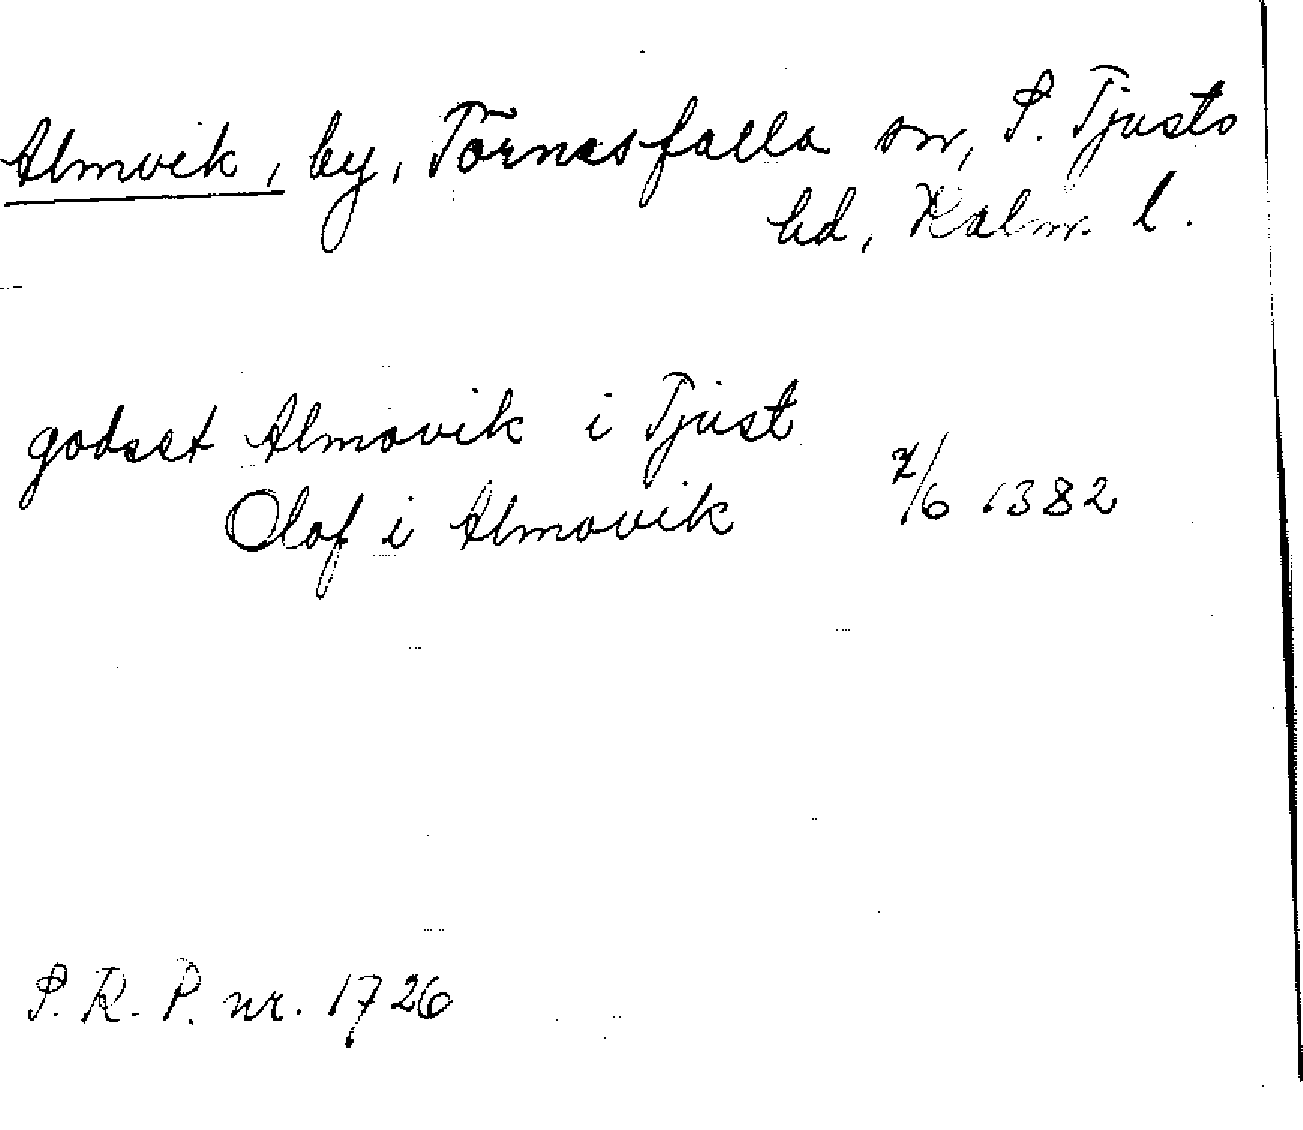 Almvik, by, Törnesfalla sn, S. Tjusts
hd, Kalm. l.
godset Almovik i Tjust
Olof i Almovik 7/6 1382
S. R. P. nr. 1726